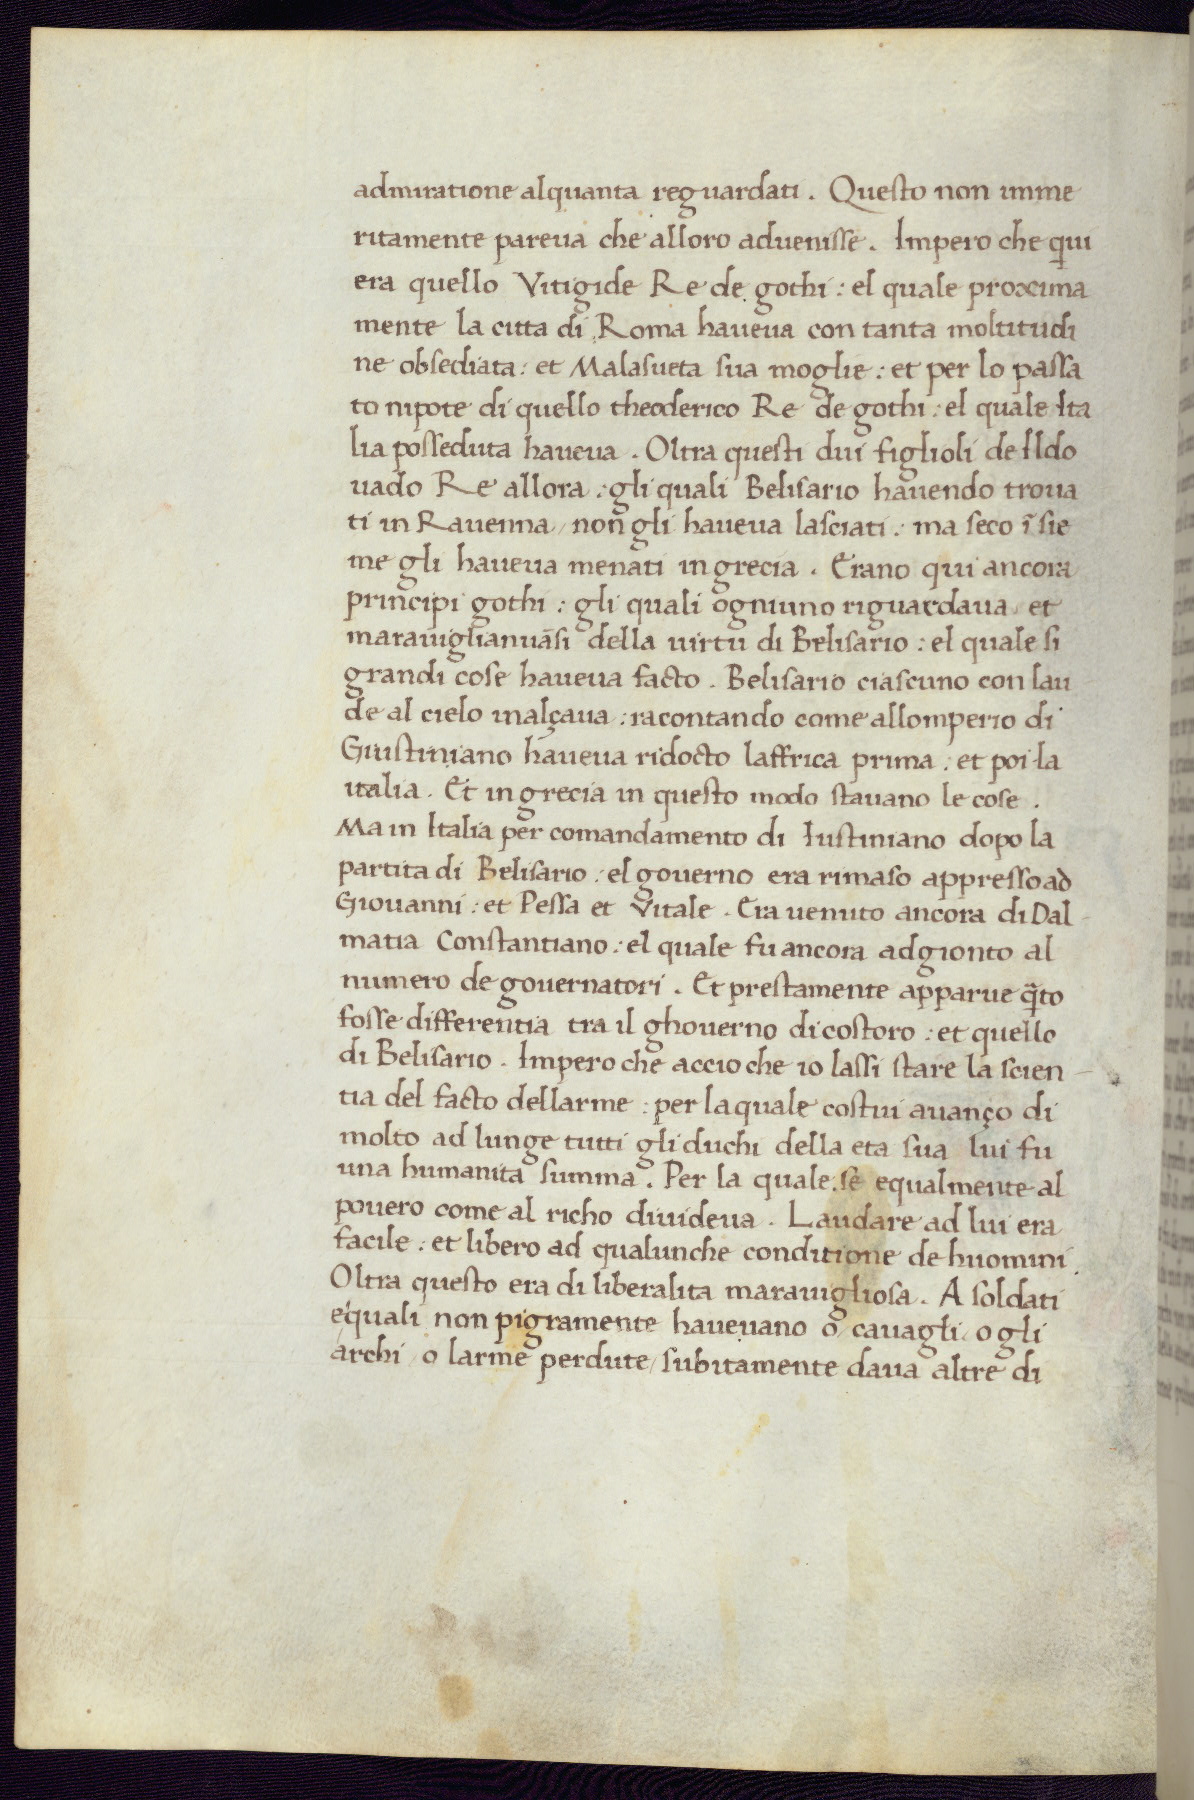 admiratione alquanta reguardati. Questo non imme
ritamente pareua che alloro aduenisse. Impero che qui
era quello Vitigide Re de gothi: el quale proxima
mente la citta di Roma haueua con tanta moltitudi
ne obsediata: et Malasueta sua moglie: et per lo passa
to nipote di quello theoderico Re de gothi: el quale Ita
lia posseduta haueua. Oltra questi dui figlioli de Ildo
uado Re allora: gli quali Belisario hauendo troua
ti in Rauenna / non gli haueua lasciati: ma seco ĩ sie
me gli haueua menati in grecia. Erano qui ancora
principi gothi: gli quali ogniuno riguardaua / et
marauiglianuãsi della uirtu di Belisario: el quale si
grandi cose haueua facto. Belisario ciascuno con lau
de al cielo inalçaua: racontando come allomperio di
Giustiniano haueua ridocto laffrica prima: et poi la
italia. Et in grecia in questo modo stauano le cose.
Ma in Italia per comandamento di Iustiniano dopo la
partita di Belisario: el gouerno era rimaso appresso ad
Giouanni: et Pessa et Vitale. Era uenuto ancora di Dal
matia Constantiano: el quale fu ancora adgionto al
numero de gouernatori. Et prestamente apparue q̃to
fosse differentia tra il ghouerno di costoro: et quello
di Belisario. Impero che accio che io lassi stare la scien
tia del facto dellarme: per la quale costui auanço di
molto ad lunge tutti gli duchi della eta sua lui fu
una humanita summa. Per la quale se equalmente al
pouero come al richo diuideua. Laudare ad lui era
facile: et libero ad qualunche conditione de huomini.
Oltra questo era di liberalita marauigliosa. A soldati
equali non pigramente haueuano o cauagli / o gli
archi / o larme perdute / subitamente daua altre di